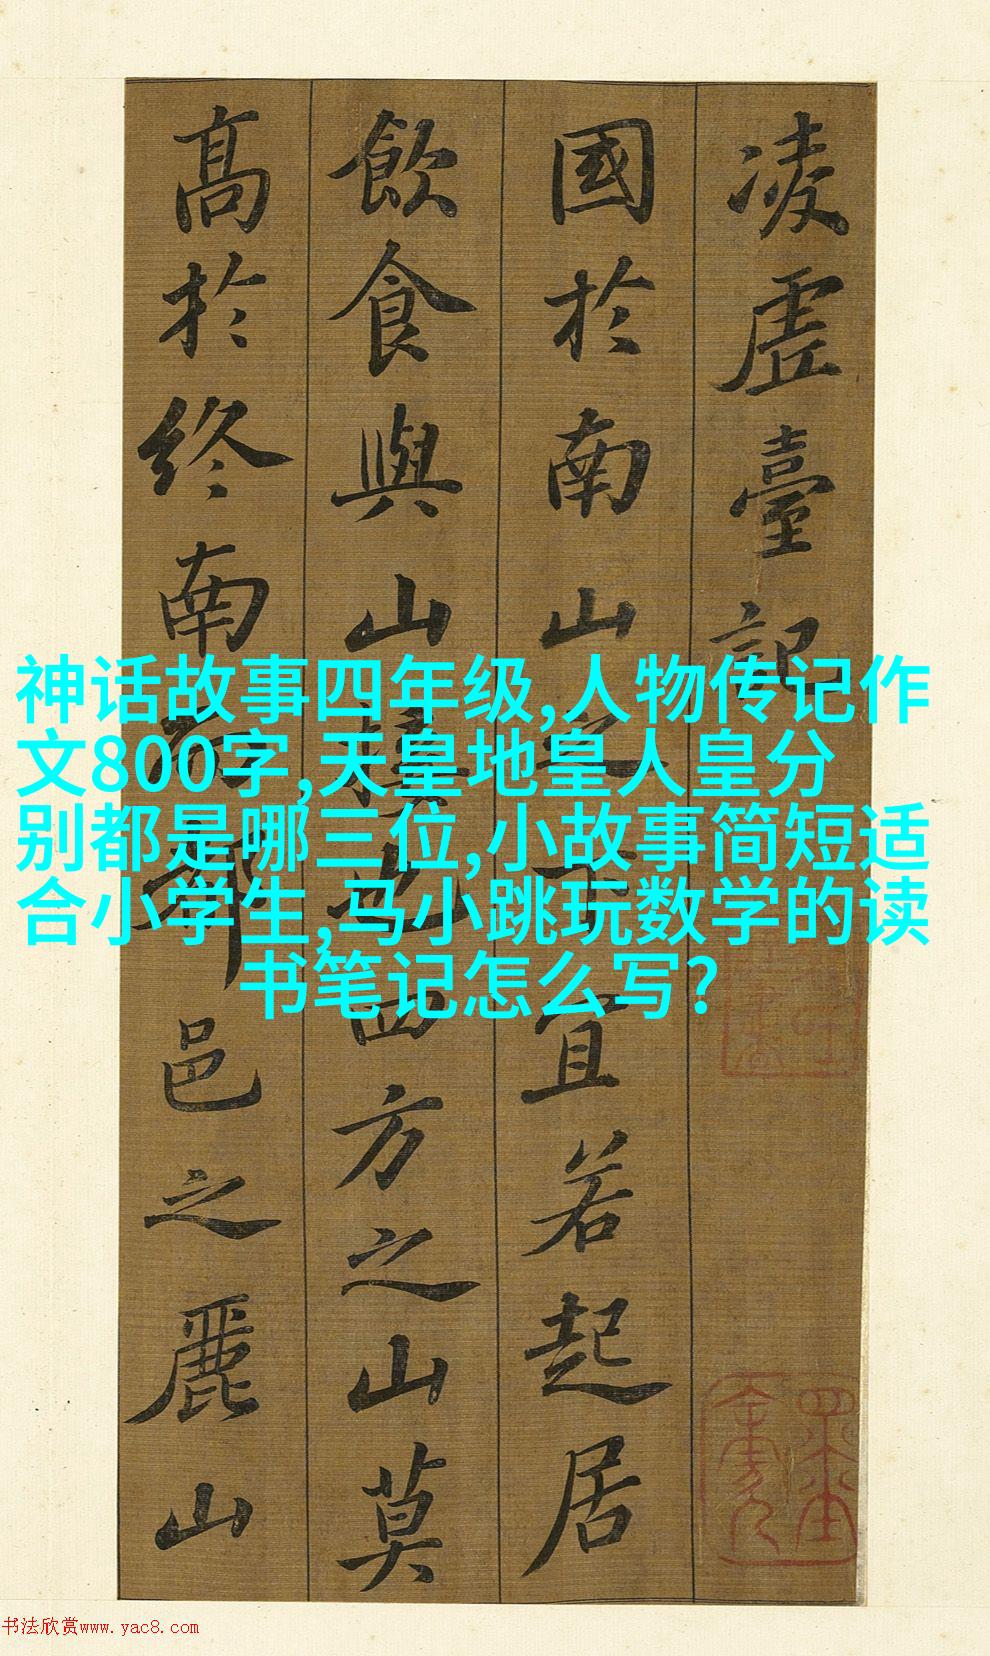 凌虛臺記
國於南山之下宜若起居
飲食與山接也四方之山莫
高於終南而都邑之麗山
神话故事四年级,人物传记作
文800字,天皇地皇人皇分
别都是哪三位,小故事简短适
合小学生,马小跳玩数学的读
书笔记怎么写?
书法欣赏www.yac8.com